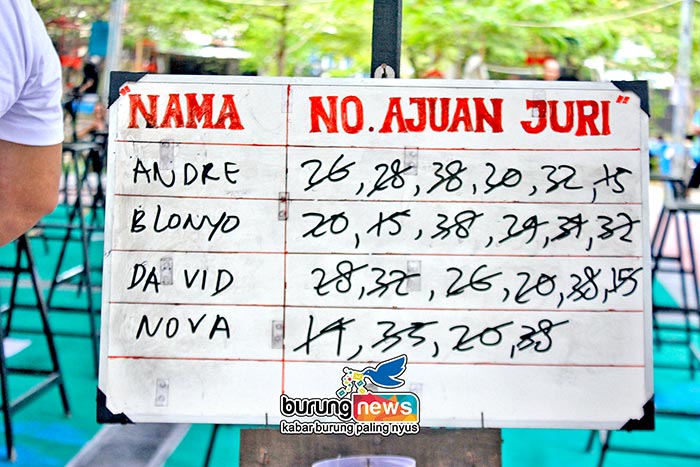 "NAMA NO. AJUAN JURI"
ANDRE 26, 28, 38, 30, 32, 15
BLONYO 20, 15, 38, 29, 39, 32
DAVID 28, 32, 26, 20, 38, 15
NOVA 19, 35, 20, 38
burungnews
kabar burung paling nyus